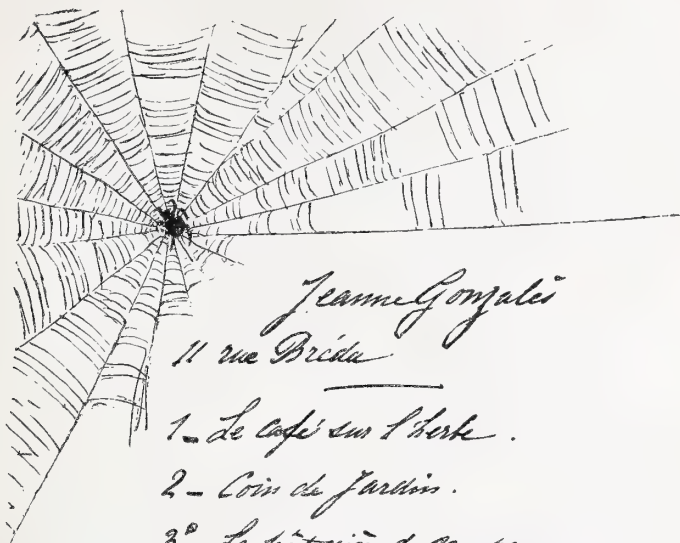 Jeanne Gonzalès
11 rue Bréda
1_ Le café sur l'herbe.
2_ Coin de Jardin.
3°